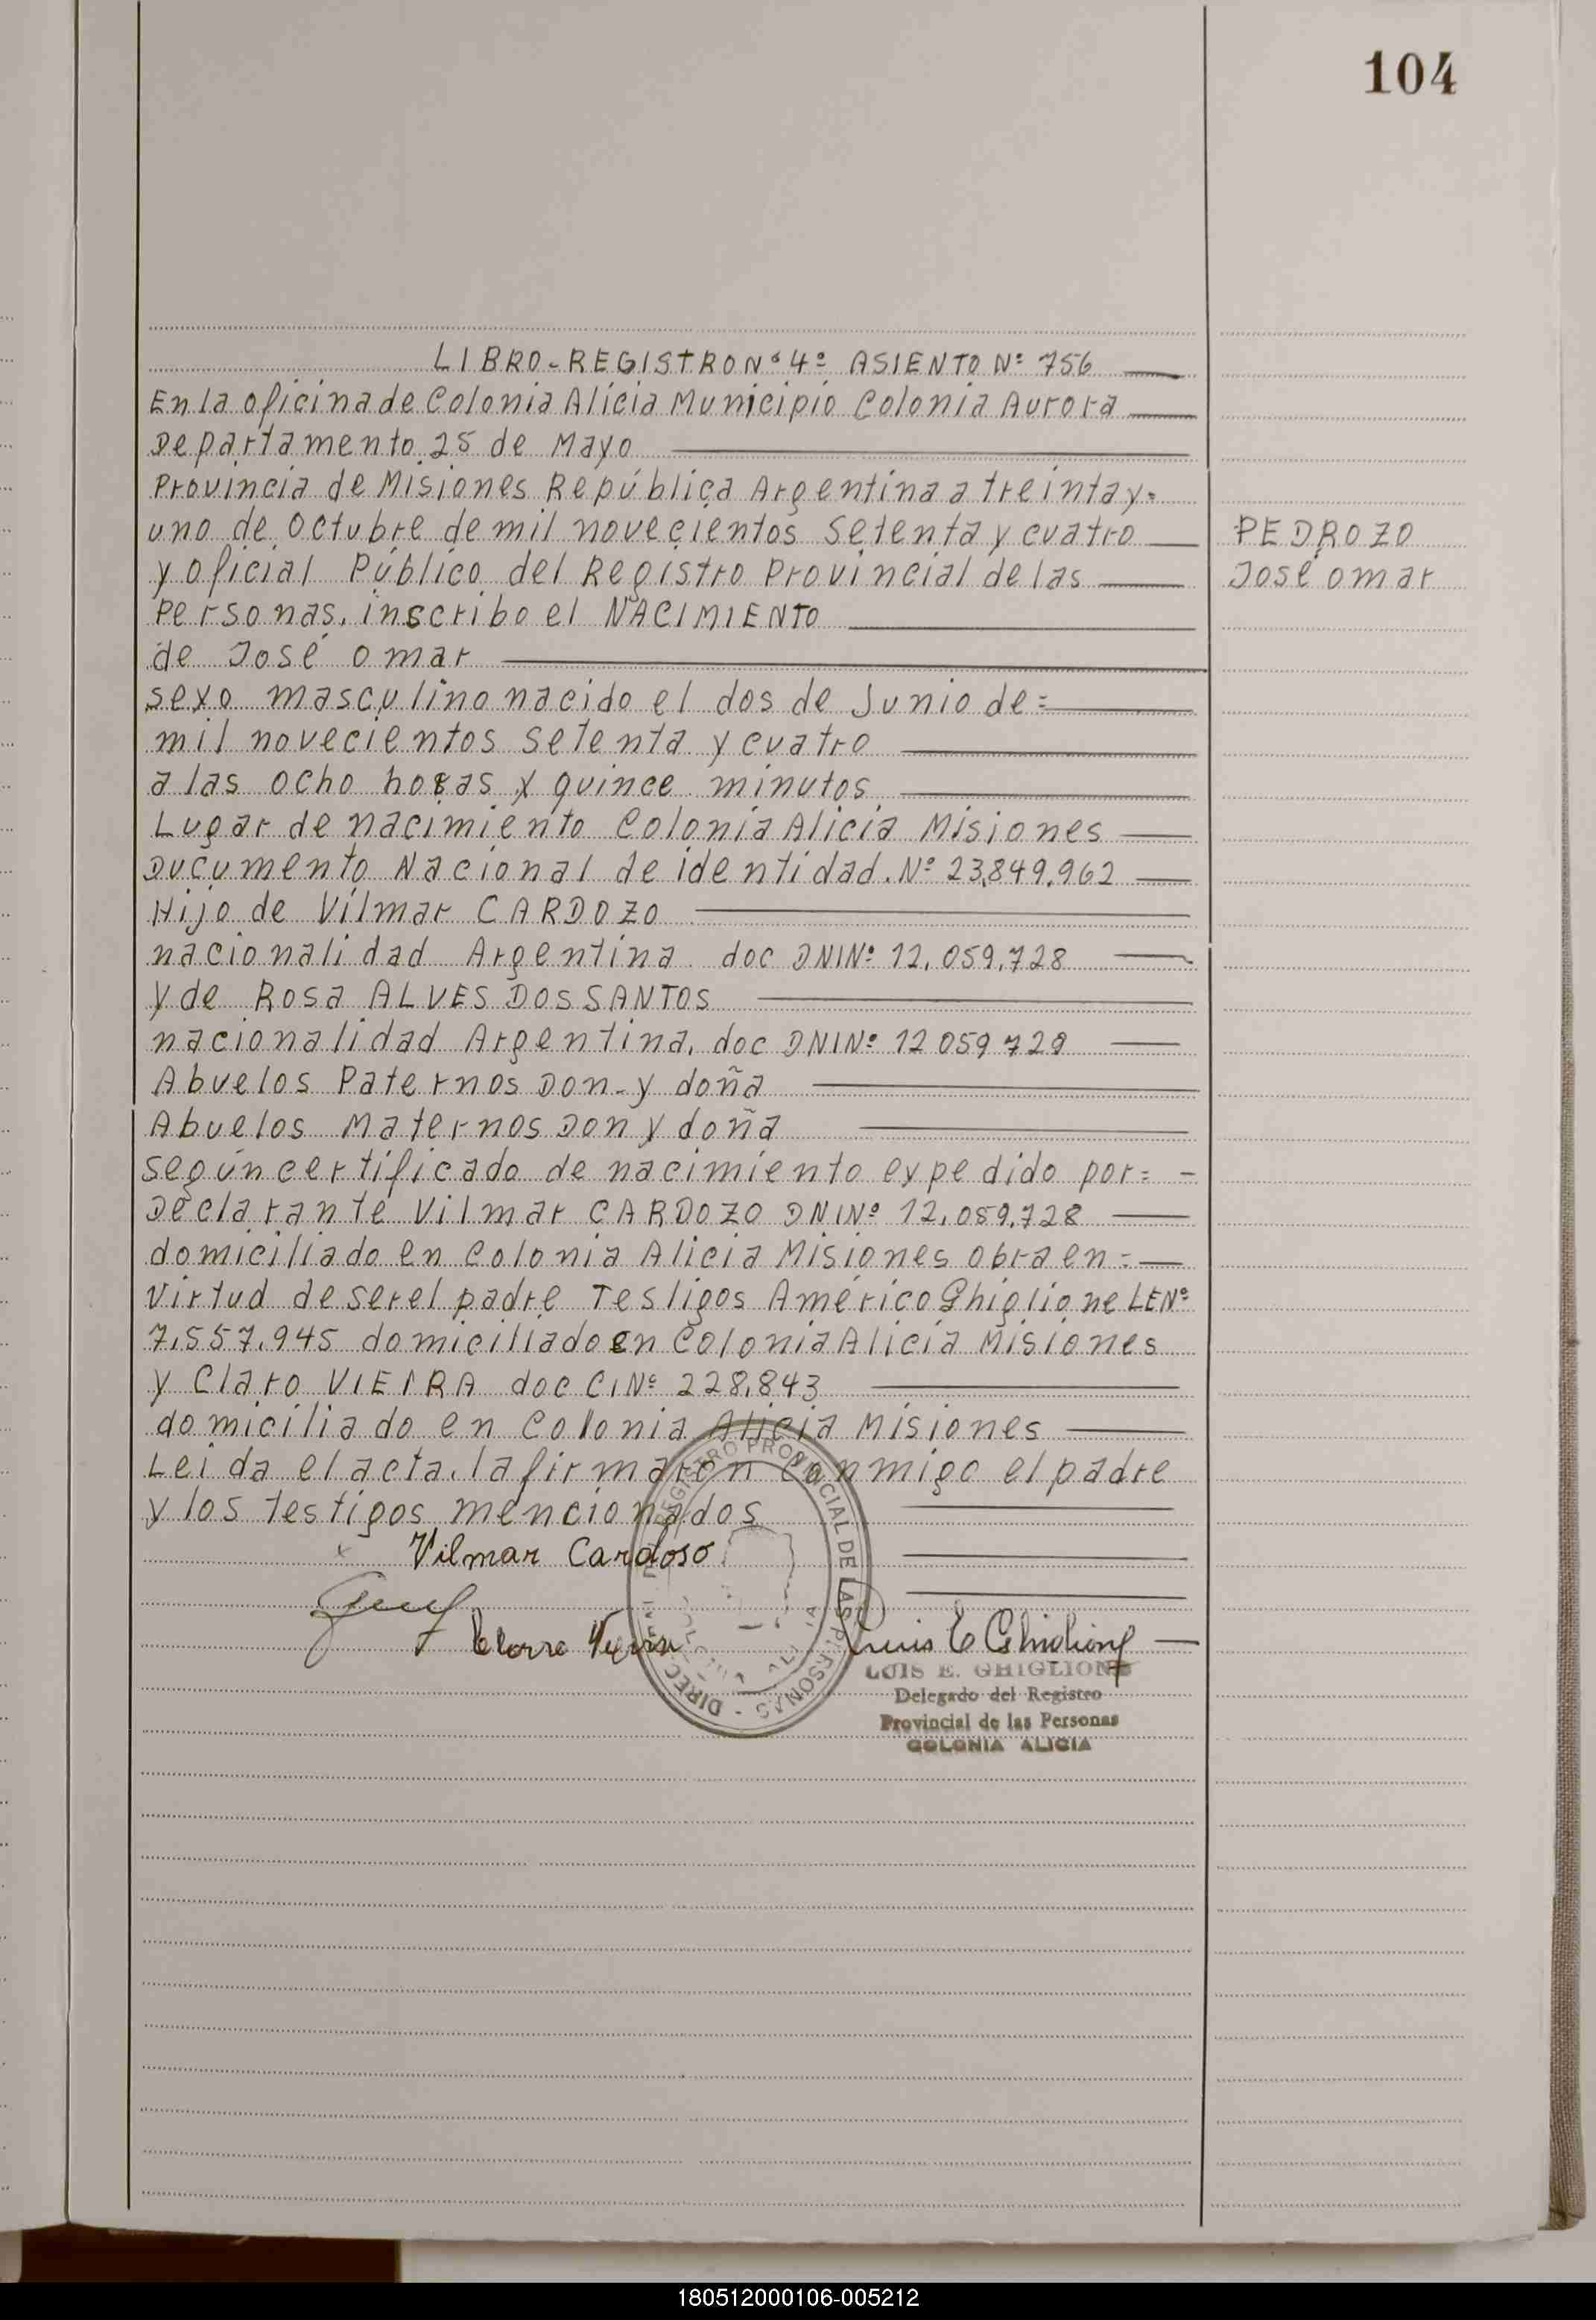 104
LIBRO-REGISTRO Nº 4º ASIENTO Nº 756
En la oficina de Colonia Alicia Municipio Colonia Aurora
Departamento 25 de Mayo
Provincia de Misiones República Argentina a treinta y=
uno de Octubre de mil novecientos setenta y cuatro
PEDROZO
y oficial Público del Registro Provincial de las
José omar
Personas, inscribo el NACIMIENTO
de José omar
sexo masculino nacido el dos de Junio de=
mil novecientos setenta y cuatro
a las ocho horas y quince minutos
Lugar de nacimiento Colonia Alicia Misiones
Documento Nacional de identidad. Nº 23,849.962
Hijo de Vilmar CARDOZO
nacionalidad Argentina doc DNI Nº 12.059.728
y de Rosa ALVES DOS SANTOS
nacionalidad Argentina. doc DNI Nº 12 059 729
Abuelos Paternos Don-y doña
Abuelos Maternos Don y doña
según certificado de nacimiento expedido por= -
Declarante Vilmar CARDOZO DNI Nº 12.059.728
domiciliado en Colonia Alicia Misiones obra en=
virtud de ser el padre Testigos Américo Ghiglione LE Nº
7.557.945 domiciliado en Colonia Alicia Misiones
y Claro VIEIRA doc CI Nº 228.843
domiciliado en Colonia Alicia Misiones
Leida el acta, la firmaron conmigo el padre
y los testigos mencionados
x Vilmar Cardoso
Luis E Ghiglione
LUIS E. GHIGLIONE
Delegado del Registro
Provincial de las Personas
COLONIA ALICIA
REGISTRO PROVINCIAL DE LAS PERSONAS
180512000106-005212